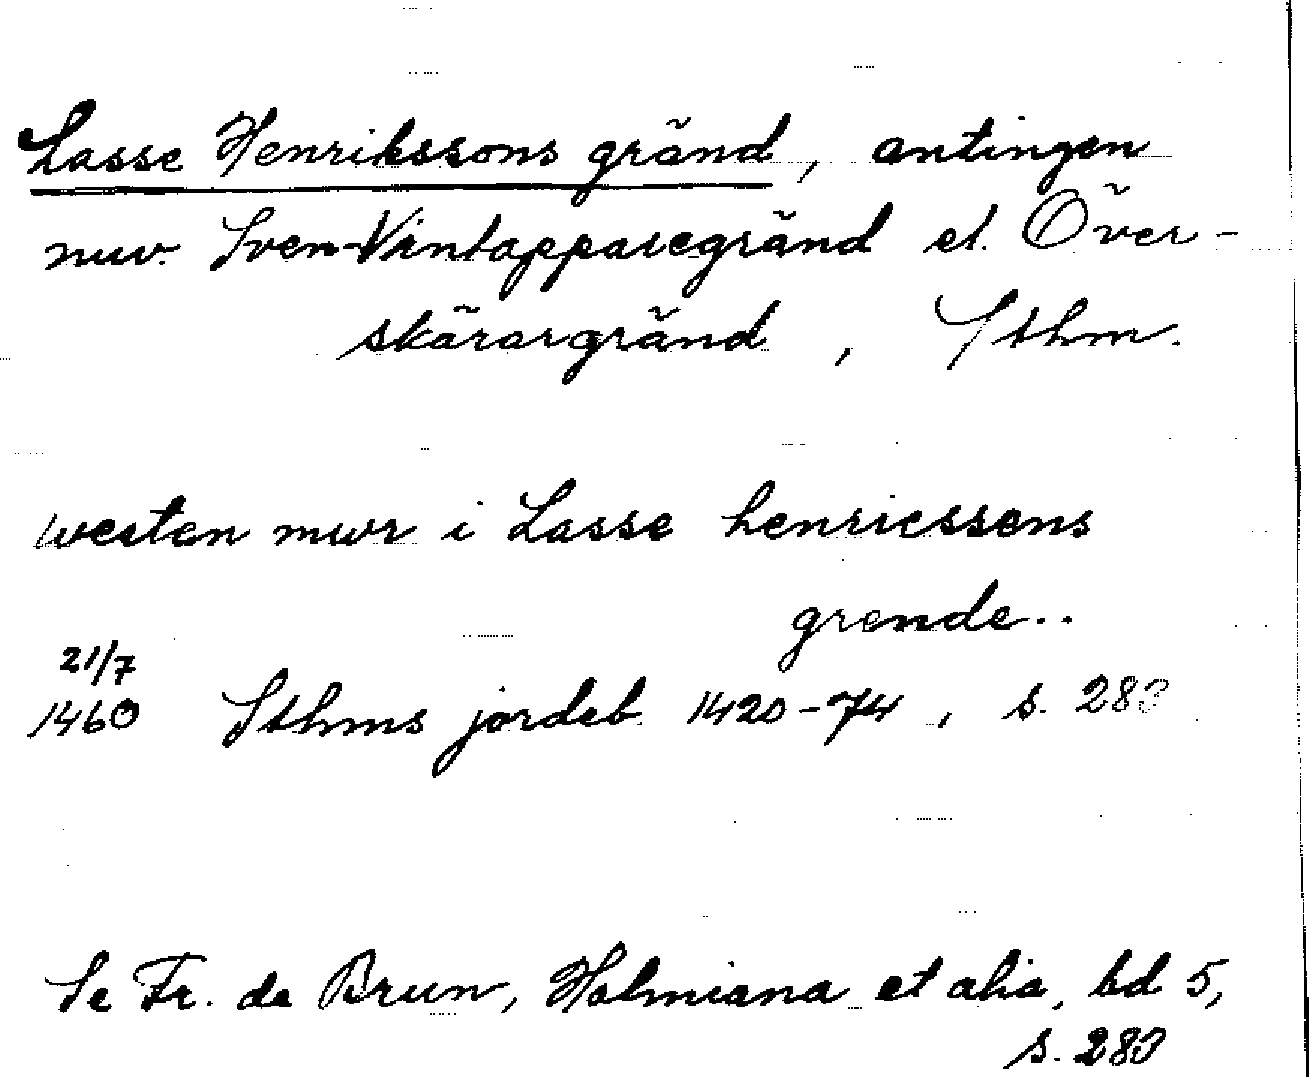 Lasse Henrikssons gränd, antingen
nuv. Sven Vintappares gränd el. Över-
skärargränd, Sthm.
westen mwr i Lasse henricssens
grende..
21/7
1460 Sthms jordeb. 1420-74, s. 283
Se Fr. de Brun, Holmiana et alia, bd 5,
s. 280